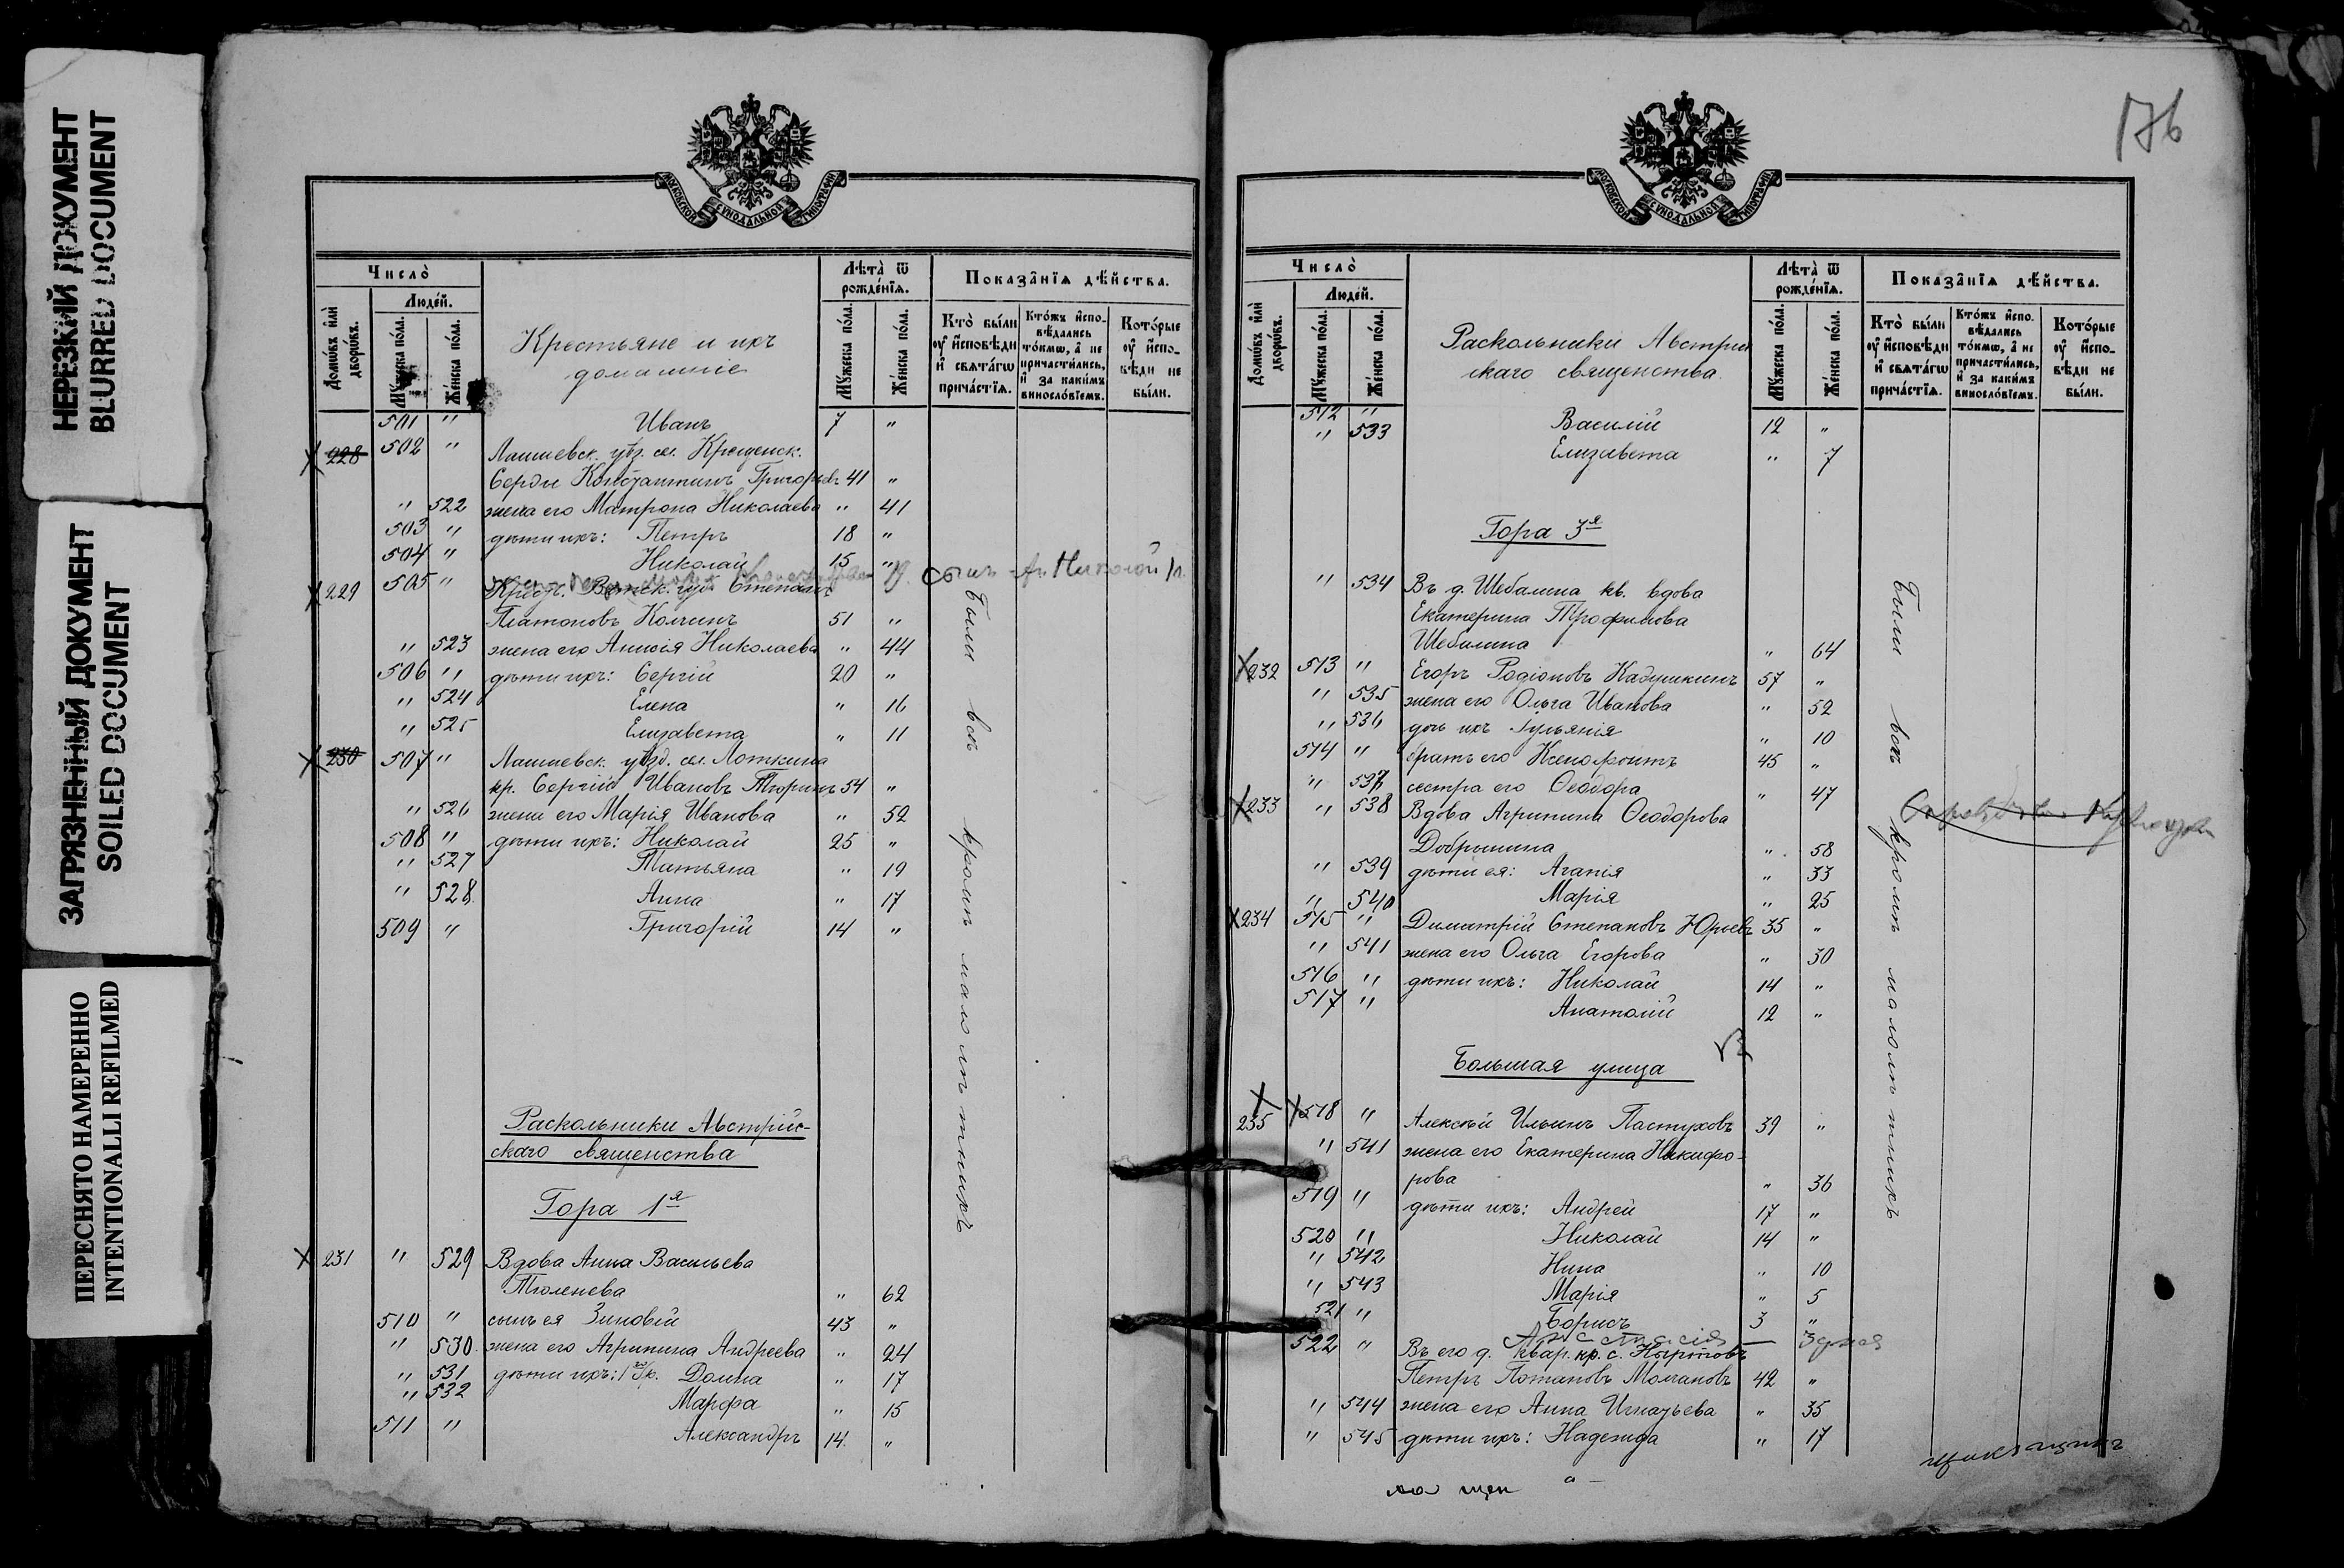 НЕРЕЗКИЙ ДОКУМЕНТ
BLURRED DOCUMENT
ЗАГРЯЗНЕННЫЙ ДОКУМЕНТ
SOILED DOCUMENT
ПЕРЕСНЯТО НАМЕРЕННО
INTENTIONALLI REFILMED
МОСКОВСКОЙ СѴНОДАЛЬНОЙ ТИПОГРАФІИ
Число̀
Домѡ́въ и҆лѝ дворѡ́въ.
Люде́й.
Мꙋ́жеска по́ла.
Же́нска по́ла.
Крестьяне и ихъ
домашніе
Лѣта̀ ѿ рожде́нїѧ.
Мꙋ́жеска по́ла.
Же́нска по́ла.
Показа̑нїѧ дѣ́йства.
Кто̀ бы́ли оу҆ и҆сповѣ́ди и҆ свѧта́гѡ прича́стїѧ.
Кто́жъ и҆спо- вѣ́дались то́кмѡ, а҆ не причасти́лись, и҆ за каки́мъ виносло́вїемъ.
Кото́рые оу҆ и҆спо- вѣ́ди не бы́ли.
501 " Иванъ 7 "
228 502 " Лаишевск. уѣз. сел. Крещенск.
Серды Константинъ Григорьевъ 41 "
" 522 жена его Матрона Николаева " 41
503 " дѣти ихъ: Петръ 18 "
504 " Николай 15 "
229 505 " Крест. Вятск. губ. Степанъ
Платоновъ Колчинъ 51 "
" 523 жена его Анисія Николаева " 44
506 " дѣти ихъ: Сергій 20 "
" 524 Елена " 16
" 525 Елизавета " 11
230 507 " Лаишевск. уѣзд. сел. Лоткина
кр. Сергій Ивановъ Тюринъ 54 "
" 526 жена его Марія Иванова " 52
508 " дѣти ихъ: Николай 25 "
" 527 Татьяна " 19
" 528 Анна " 17
509 " Григорій 14 "
Были всѣ кромѣ малолѣтнихъ
Раскольники Австрій-
скаго священства
Гора 1я
231 " 529 Вдова Анна Васильева
Тюленева " 62
510 " сынъ ея Зиновій 43 "
" 530 жена его Агрипина Андреева " 24
" 531 дѣти ихъ: 1го бр. Домна " 17
" 532 Марфа " 15
511 " Александръ 14 "
176
МОСКОВСКОЙ СѴНОДАЛЬНОЙ ТИПОГРАФІИ
Число̀
Домѡ́въ и҆лѝ дворѡ́въ.
Люде́й.
Мꙋ́жеска по́ла.
Же́нска по́ла.
Раскольники Австрій
скаго священства.
Лѣта̀ ѿ рожде́нїѧ.
Мꙋ́жеска по́ла.
Же́нска по́ла.
Показа̑нїѧ дѣ́йства.
Кто̀ бы́ли оу҆ и҆сповѣ́ди и҆ свѧта́гѡ прича́стїѧ.
Кто́жъ и҆спо- вѣ́дались то́кмѡ, а҆ не причасти́лись, и҆ за каки́мъ виносло́вїемъ.
Кото́рые оу҆ и҆спо- вѣ́ди не бы́ли.
512 " Василій 12 "
" 533 Елизавета " 7
Гора 3я
" 534 Въ д. Шебалина кв. вдова
Екатерина Трофимова
Шебалина " 64
232 513 " Егоръ Родіоновъ Кадушкинъ 57 "
" 535 жена его Ольга Иванова " 52
" 536 дочь ихъ Іульянія " 10
514 " братъ его Ксенофонтъ 45 "
" 537 сестра его Ѳеодора " 47
233 " 538 Вдова Агрипина Ѳеодорова
Добрынина " 58
" 539 дѣти ея: Агапія " 33
" 540 Марія " 25
234 515 " Димитрій Степановъ Юрьевъ 35 "
" 541 жена его Ольга Егорова " 30
516 " дѣти ихъ: Николай 14 "
517 " Анатолій 12 "
Были всѣ кромѣ малолѣтнихъ
Большая улица
235 518 " Алексѣй Ильинъ Пастуховъ 39 "
" 541 жена его Екатерина Никифо-
рова " 36
519 " дѣти ихъ: Андрей 17 "
520 " Николай 14 "
" 542 Нина " 10
" 543 Марія " 5
521 " Борисъ 3 "
Анастасія
522 " Въ его д. квар. кр. с. Нырповъ
Петръ Потаповъ Молчановъ 42 "
" 544 жена его Анна Игнатьева " 35
" 545 дѣти ихъ: Надежда " 17